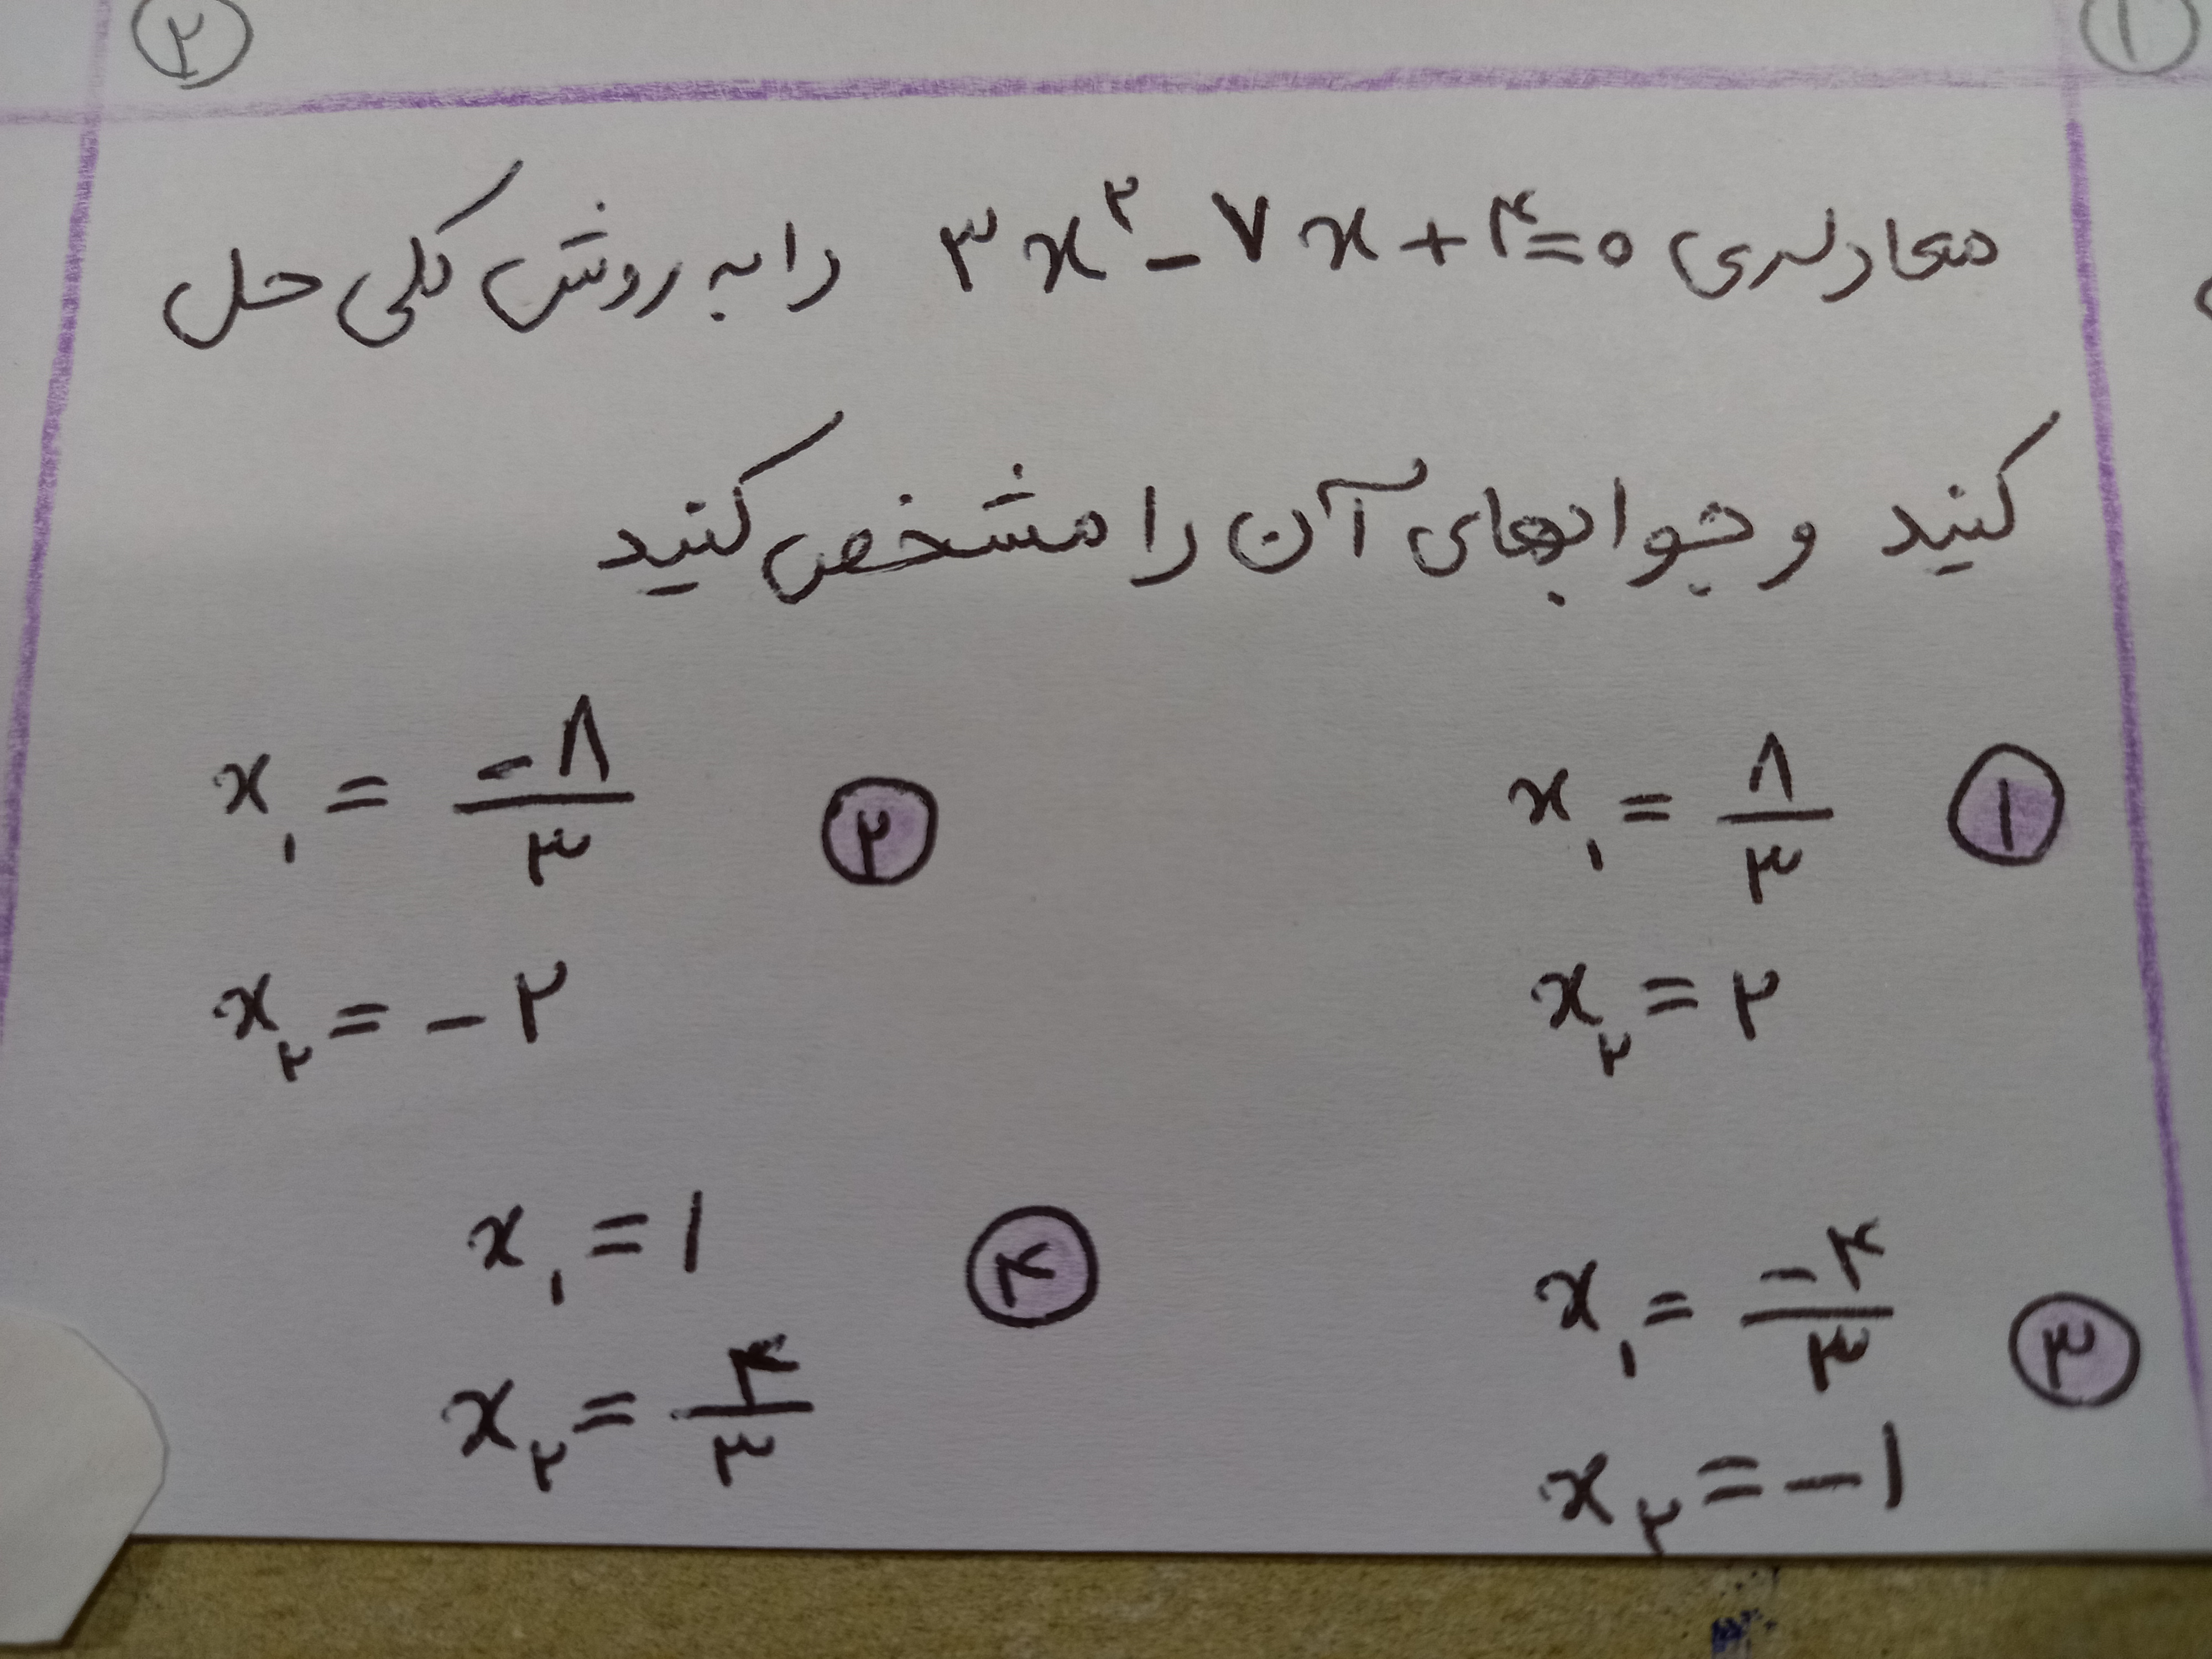 ۲
۱
معادله‌ی ۳x^۲ - ۷x + ۴ = ۰ را به روش کلی حل
کنید و جوابهای آن را مشخص کنید
۱ x_۱ = ۸/۳
x_۲ = ۲
۲ x_۱ = -۸/۳
x_۲ = -۲
۳ x_۱ = -۴/۳
x_۲ = -۱
۴ x_۱ = ۱
x_۲ = ۴/۳